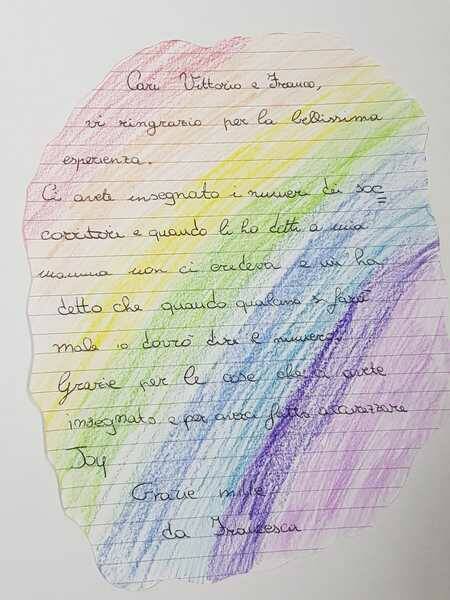 Cari Vittorio e Franco,
vi ringrazio per la bellissima
esperienza.
Ci avete insegnato i numeri dei soc
corritori e quando li ho detti a mia
mamma non ci credeva e mi ha
detto che quando qualcuno si farà
male io dovrò dire il numero.
Grazie per le cose che ci avete
insegnato e per averci fatto accarezzare
Joy
Grazie mille
da Francesca